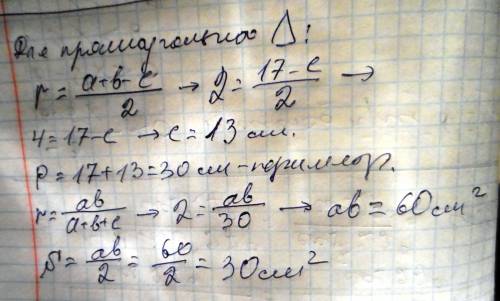 Для прямоугольного Δ:
r = a+b-c/2 → 2 = 17-c/2 →
4 = 17-c → c = 13 см.
P = 17+13 = 30 см - периметр.
r = ab/a+b+c → 2 = ab/30 → ab = 60 см²
S = ab/2 = 60/2 = 30 см²